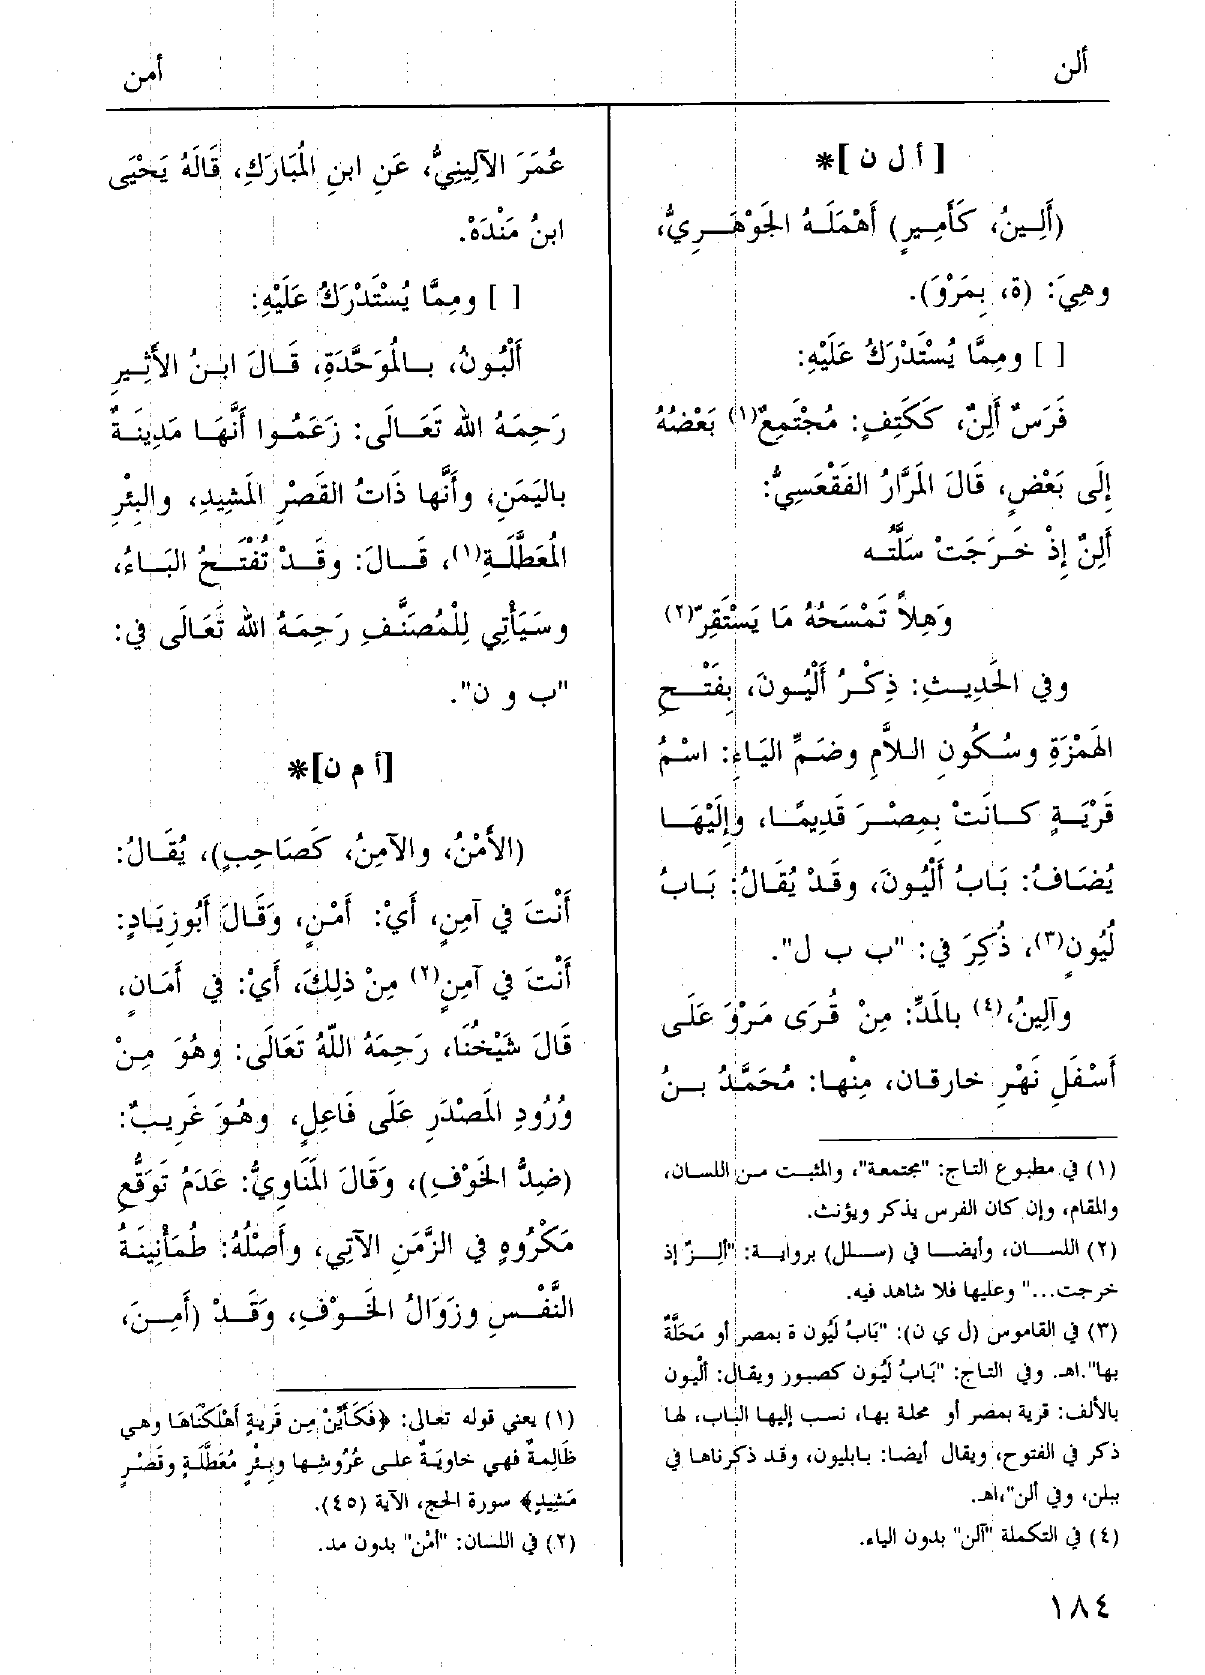 ألن
أمن
[أ ل ن]*
(أَلِـينُ، كَأَمِـيرٍ) أَهْمَلَـهُ الجَوْهَـرِيُّ،
وهِيَ: (ة، بِمَرْوَ).
[ ] ومِمَّا يُسْتَدْرَكُ عَلَيْهِ:
فَرَسٌ أَلِنٌ، كَكَتِفٍ: مُجْتَمِعٌ(١) بَعْضُهُ
إِلَى بَعْضٍ، قَالَ المَرَّارُ الفَقْعَسِيُّ:
أَلِنٌ إِذْ خَـرَجَتْ سَلَّتُـه
وَهِلاً تَمْسَحُهُ مَا يَسْتَقِرّ(٢)
وفي الحَدِيـثِ: ذِكْـرُ أَلْيُـونَ، بِفَتْـحِ
الهَمْزَةِ وسُـكُونِ الـلاَّمِ وضَـمِّ اليَاءِ: اسْـمُ
قَرْيَـةٍ كَـانَتْ بِمِصْـرَ قَدِيمًـا، وإِلَيْهَـا
يُضَـافُ: بَـابُ أَلْيُـونَ، وقَـدْ يُقَـالُ: بَـابُ
لُيُونٍ(٣)، ذُكِرَ فِي: "ب ب ل".
وآلِينُ،(٤) بالمَدِّ: مِنْ قُرَى مَرْوَ عَلَـى
أَسْفَلِ نَهْرِ خارقان، مِنْها: مُحَمَّدُ بـنُ
(١) في مطبوع التاج: "مجتمعة"، والمثبت من اللسان،
والمقام، وإن كان الفرس يذكر ويؤنث.
(٢) اللسـان، وأيضـا في (سـلل) بروايـة: "أَلِـزٌ إذ
خرجت..." وعليها فلا شاهد فيه.
(٣) في القاموس (ل ي ن): "بَابُ لَيُون ة بمصر أو مَحَلَّةٌ
بها".اهـ. وفي التاج: "بَابُ لَيُون كصبور ويقال: أَلْيون
بالألف: قرية بمصر أو محلة بها، نسب إليها الباب، لها
ذكر في الفتوح، ويقال أيضا: بابليون، وقد ذكرناها في
ببلن، وفي ألن"،اهـ.
(٤) في التكملة "آلن" بدون الياء.
عُمَرَ الآلِينِيُّ، عَنِ ابنِ المُبَارَكِ، قَالَهُ يَحْيَى
ابنُ مَنْدَهْ.
[ ] ومِمَّا يُسْتَدْرَكُ عَلَيْهِ:
أَلْبُونُ، بـالمُوَحَّدَةِ، قَـالَ ابـنُ الأَثِيـرِ
رَحِمَهُ الله تَعَـالَى: زَعَمُـوا أَنَّهَـا مَدِينَـةٌ
باليَمَنِ، وأَنَّها ذَاتُ القَصْرِ المَشِيدِ، والبِئْرِ
المُعَطَّلَـةِ(١)، قَـالَ: وقَـدْ تُفْتَـحُ البَـاءُ،
وسَيَأْتِي لِلْمُصَنَّـفِ رَحِمَـهُ الله تَعَـالَى فِي:
"ب و ن".
[أ م ن]*
(الأَمْنُ، والآمِنُ، كَصَاحِبٍ)، يُقَـالُ:
أَنْتَ فِي آمِنٍ، أَيْ: أَمْنٍ، وَقَالَ أَبُوزِيَادٍ:
أَنْتَ فِي آمِنٍ(٢) مِنْ ذلِكَ، أَيْ: فِي أَمَانٍ،
قَالَ شَيْخُنَا، رَحِمَهُ اللهُ تَعَالَى: وهُوَ مِـنْ
وُرُودِ المَصْدَرِ عَلَى فَاعِلٍ، وهُوَ غَرِيبٌ:
(ضِدُّ الخَوْفِ)، وَقَالَ المَنَاوِيُّ: عَدَمُ تَوَقُّعِ
مَكْرُوهٍ فِي الزَّمَنِ الآتِي، وأَصْلُهُ: طُمَأْنِينَةُ
النَّفْسِ وزَوَالُ الخَـوْفِ، وَقَـدْ (أَمِـنَ،
(١) يعني قوله تعالى: ﴿فَكَأَيِّنْ مِن قَريةٍ أَهْلَكْنَاهَا وهي
ظَالِمةٌ فهي خاويَةٌ على عُرُوشِها وبِئْرٍ مُعَطَّلَةٍ وقَصْرٍ
مَشِيدٍ﴾ سورة الحج، الآية (٤٥).
(٢) في اللسان: "أَمْن" بدون مد.
١٨٤